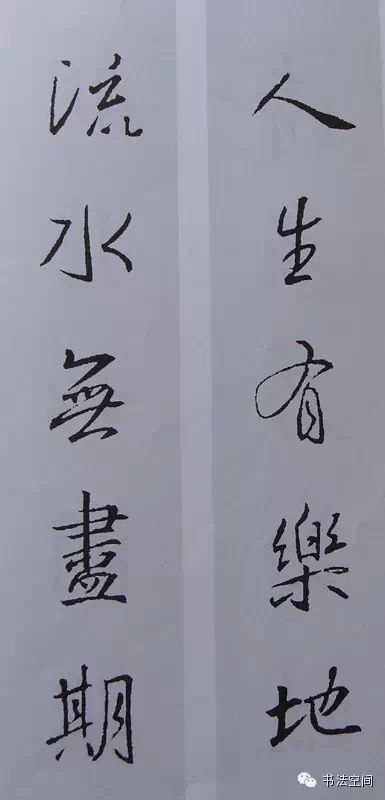 人生有樂地
流水無盡期
书法空间